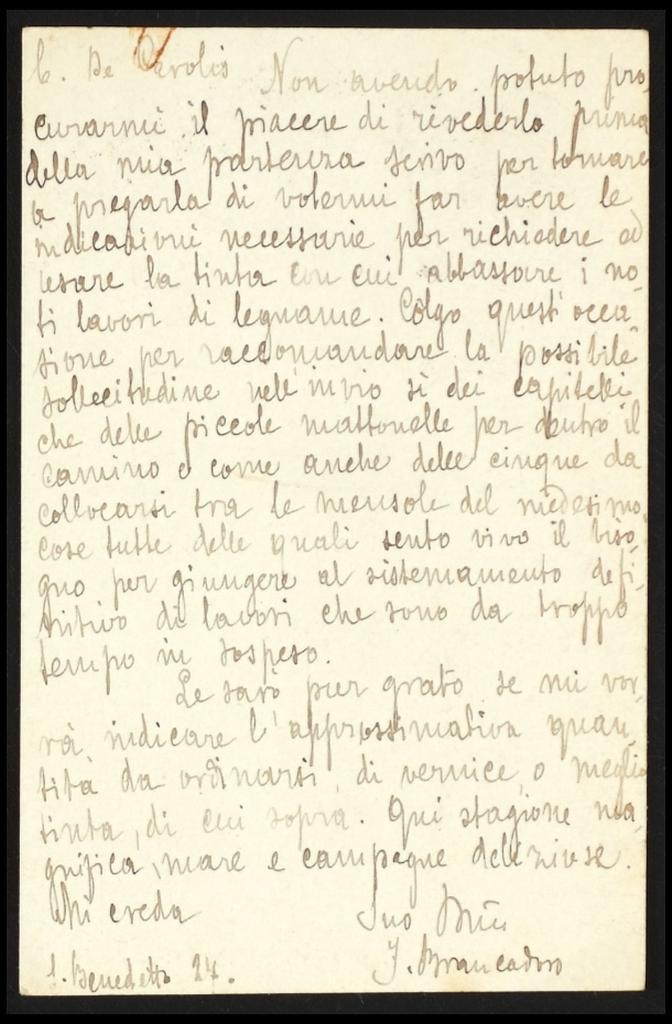 C. De Carolis Non avendo potuto pro-
curarmi il piacere di rivederlo prima
della mia partenza scrivo per tornare
a pregarla di volermi far avere le
indicazioni necessarie per richiedere ed
usare la tinta con cui abbassare i no-
ti lavori di legname. Colgo quest'occa-
sione per raccomandare la possibile
sollecitudine nell'invio sì dei capitelli
che delle piccole mattonelle per dentro il
camino e come anche delle cinque da
collocarsi tra le mensole del medesimo,
cose tutte delle quali sento vivo il biso-
gno per giungere al sistemamento defi-
nitivo di lavori che sono da troppo
tempo in sospeso.
Le sarò pur grato se mi vor-
rà indicare l'approssimativa quan-
tità da ordinarsi, di vernice, o meglio
tinta, di cui sopra. Qui stagione ma-
gnifica, mare e campagne deliziose.
Mi creda Suo
S. Benedetto 24. J. Brancadoro